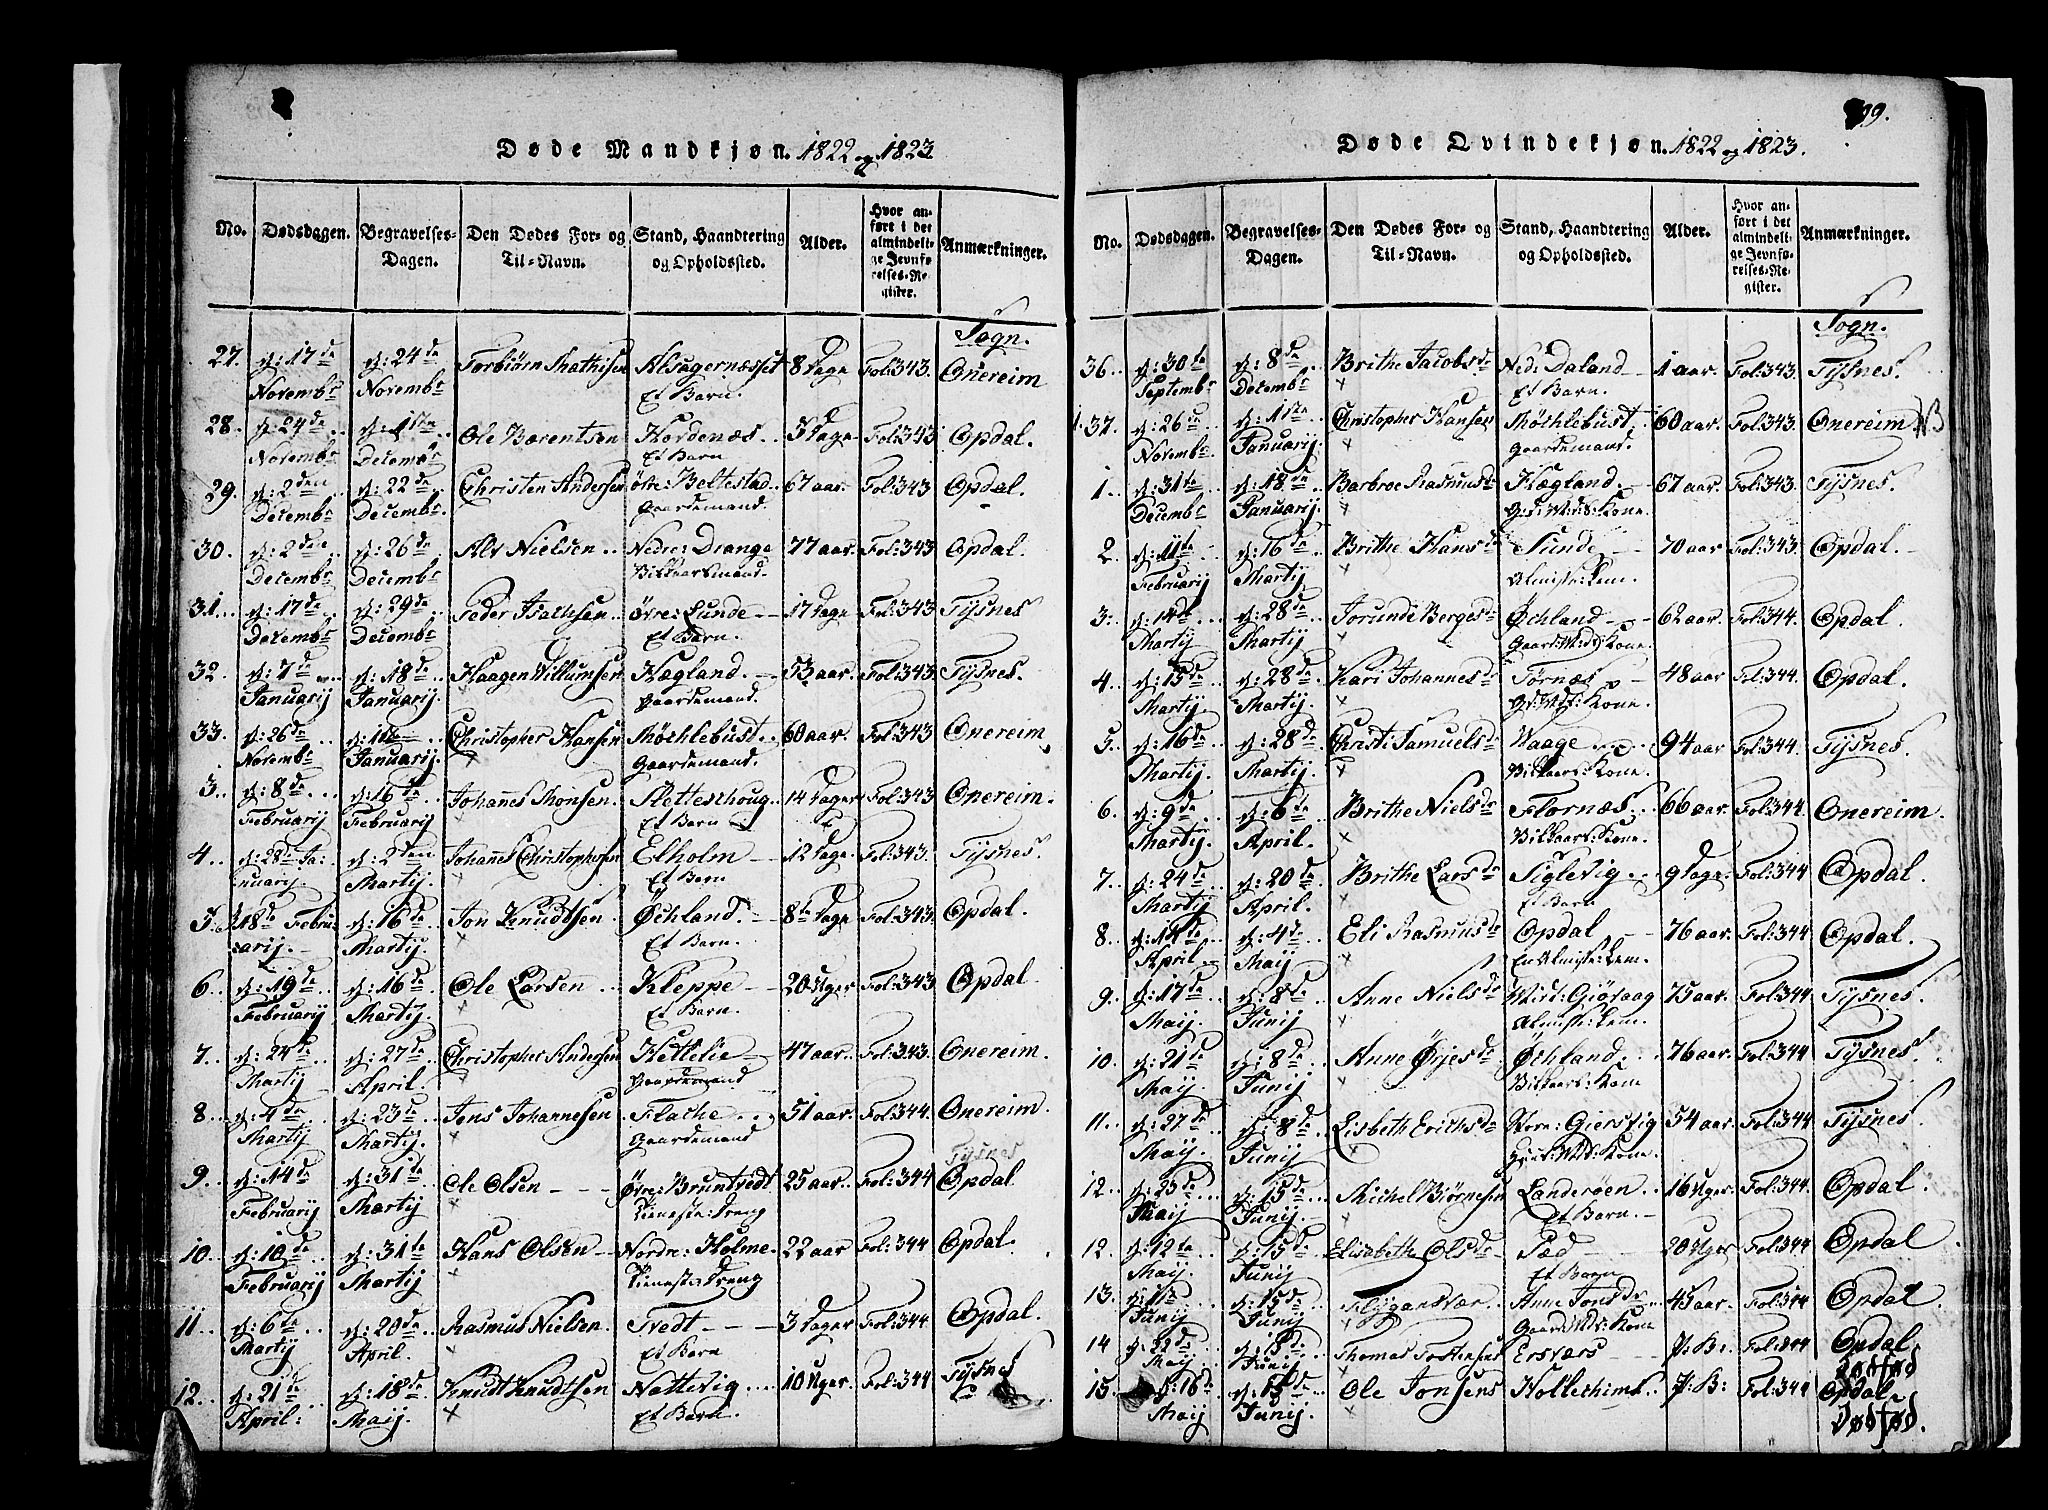 Døde Mandkjøn. 1822 og 1823
No. Dødsdagen. Begravelses-Dagen. Den Dødes For- og Til-Navn. Stand, Haandtering og Opholdssted. Alder. Hvor anført i det almindelige Jevnførelses-Register. Anmærkninger.
Sogn.
27. d: 17de d: 24de Torbiörn Mathisen Alsagernæsset 8 Dage Fol: 343. Onereim
Novembr Novembr Et Barn.
28. d: 24de d: 1ste Ole Barentsen Hordenæs 5 Dage Fol: 343 Opdal.
Novembr Decembr Et Barn
29. d: 2den d: 22de Christen Andersen övre: Beltestad 67 aar. Fol: 343 Opdal.
Decembr Decembr. Gaardemand.
30. d: 2den d: 26de Alv Nielsen Nedre: Drange 77 aar. Fol: 343 Opdal.
Decembr Decembr Vilkaarsmand.
31. d: 17de d: 29de Peder Mathisen Övre: Lunde 17 Dage Fol: 343 Tysnes
Decembr Decembr Et Barn.
32. d: 7de d: 18de Haagen Villumsen Hægland. 53 aar. Fol: 343. Tysnes.
Januarij Januarij. Gaardemand.
33. d: 26de d: 1ste Christopher Hansen Möchlebust 60 aar. Fol: 343 Onereim
Novembr Januarij. Gaardemand.
3. d: 8de d: 16de Johannes Monsen Sletteschoug 14 Dager Fol: 343 Onereim.
Februarij Februarij Et Barn
4. d: 28de Ja- d: 2den Johannes Christophersen Elholm 12 Dage Fol: 343. Tysnes.
nuarij. Martij. Et Barn
5. d 18de Febru- d: 16de Jon Knudtsen Öchland. 8te Dage Fol: 343. Opdal.
arij. Martij. Et Barn.
6. d: 19de d: 16de Ole Larsen Kleppe 20 Uger Fol: 343 Opdal.
Februarij Martij. Et Barn.
7. d: 24de d: 27de Christopher Andersen Hettelie 47 aar. Fol: 343. Onereim.
Martij April. Gaardemand
8. d: 4de d: 23de Jens Johannesen Flathe 51 aar. Fol: 344. Onereim.
Martij Martij. Gaardemand
Tysnes
9. d: 14de d: 31te Ole Olsen Övre: Bruntvedt 25 aar. Fol: 344 Opdal.
Februarij Martij Tieneste: Dreng
10. d: 10de d: 31te Hans Olsen Nordre: Holme 22 aar Fol: 344 Opdal.
Februarij Martij Tieneste: Dreng
11. d: 6de d: 20de Rasmus Nielsen. Tvedt 3 Dager Fol: 344. Opdal.
Martij April. Et Barn
12. d: 21de d: 18de Knudt Knudtsen Nattevig 10 Uger. Fol: 344 Tysnes
April: Maij. Et Barn.
99.
Døde Qvindekjøn. 1822 og 1823.
No. Dødsdagen. Begravelses-Dagen. Den Dødes For- og Til-Navn. Stand, Haandtering og Opholdssted. Alder. Hvor anført i det almindelige Jevnførelses-Register. Anmærkninger.
Sogn.
36. d: 30te d: 8de Brithe Jacobsdr Ned: Daland 1 aar. Fol: 343. Tysnes.
Septembr Decembr Et Barn.
37. d: 26de d: 1ste Christopher Hansen Möchlebust 60 aar. Fol: 343. Onereim NB
Novembr. Januarij. Gaardemand.
1. d: 31te d: 18de Barbroe Rasmusdr Hægland. 67 aar. Fol: 343. Tysnes.
Decembr Januarij. Kone.
2. d: 11te d: 16de Brithe Hansdr Sunde 70 aar Fol: 343. Opdal.
Februarij Martij. Almiste: Lem.
3. d: 14de d: 28de Jorunde Bergesdr Öchland 62 aar Fol: 344. Opdal.
Martij Martij Kone.
4. d: 15de d: 28de Kari Johannesdr Tornæs 48 aar Fol: 344. Opdal.
Martij. Martij. Kone.
5. d: 16de d: 28de Christ: Samuelsdr Waage 94 aar Fol: 344. Tysnes.
Martij. Martij. Vilkaars: Kone.
6. d: 9de d: 6te Brithe Nielsdr Flornæs 66 aar. Fol: 344. Onereim.
Martij. April. Vilkaars: Kone.
7. d: 24de d: 20de Brithe Larsdr Siglevig 9 Dage. Fol: 344 Opdal.
Martij. April. Et Barn
8. d: 14de d: 4de Eli Rasmusdr Opdal 76 aar. Fol: 344 Opdal.
April. Maij. En Almiste: Lem.
9. d: 17de d: 8de Anne Nielsdr Giösaag 75 aar. Fol: 344 Tysnes.
Maij. Junij Almiste: Lem.
10. d: 21de d: 8de Anne Öyesdr Öchland. 76 aar. Fol: 344 Tysnes.
Maij. Junij Vilkaars: Kone
11. d: 27de d: 8de Lisbeth Erichsdr Giersvig 54 aar. Fol: 344. Tysnes.
Maij. Junij Kone.
12. d: 23de d: 15de Michel Biörnesen Landeröen 16 Uger. Fol: 344. Opdal.
Maij Junij. Et Barn.
12. d: 12te d: 15de Elisabethe Olsdr Pæd 20 Uger Fol: 344 Opdal
Maij. Junij Et Barn
13. d: 1ste d: 15de Flygansvær Anne Jonsdr 45 aar. Fol: 344 Opdal.
Junij Junij Kone
14 d: 22de d: 15de Thomas Tostensens Ersværs J: B: Fol: 344 Opdal
Maij Junij Dødfød
15. d: 16de d: 15de Ole Jonsens J: B: Fol: 344 Opdal.
Maij Junij. Dødfød.